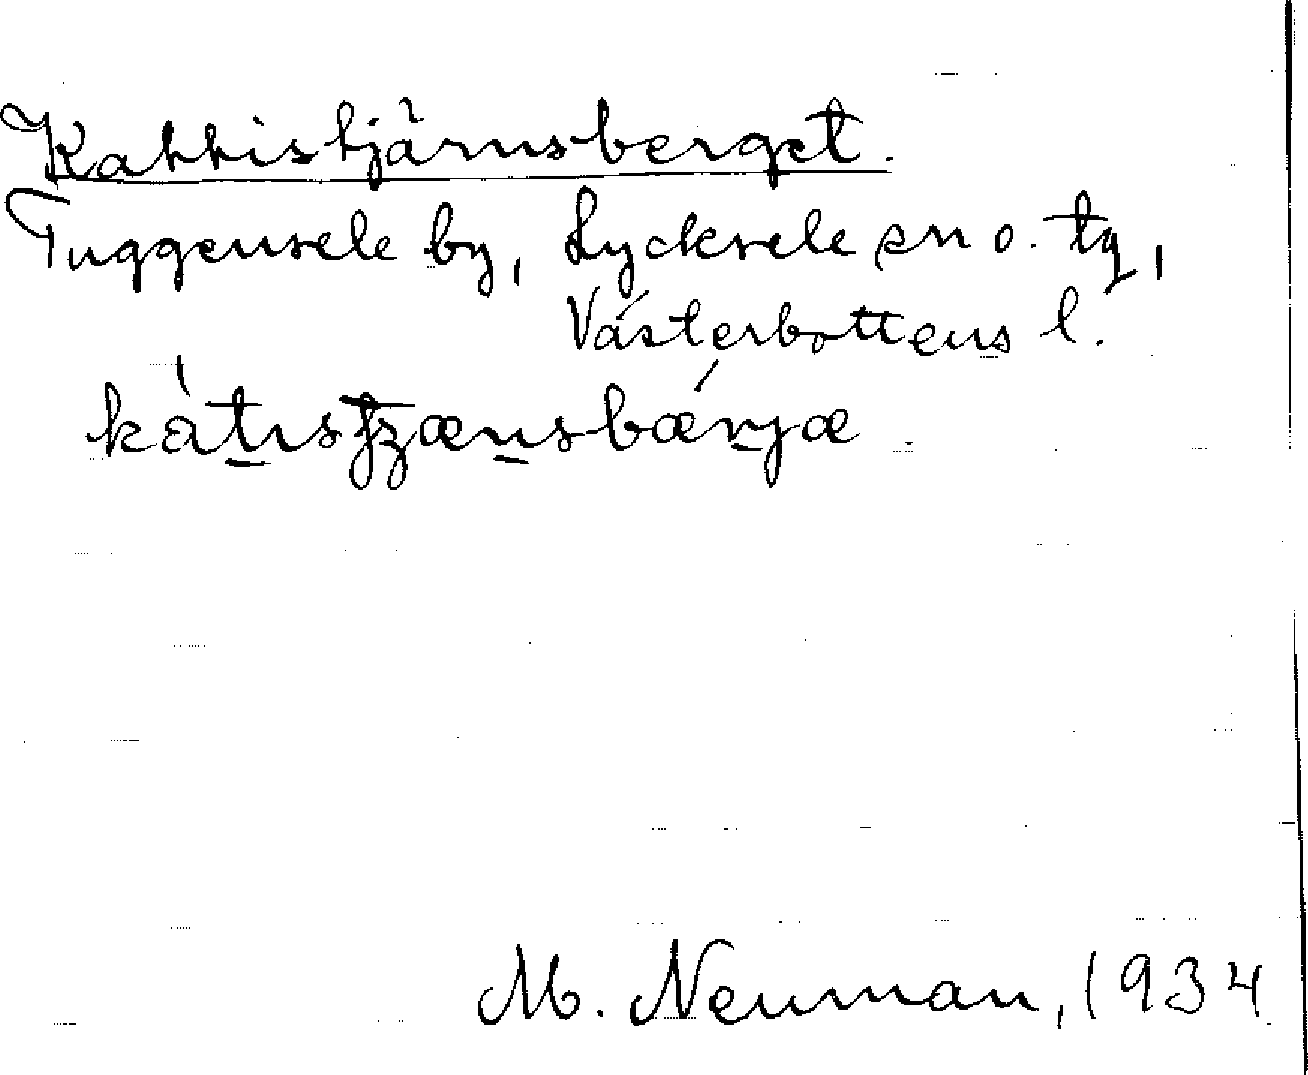 Kattistjärnsberget.
Tuggensele by, Lycksele sn o. tg,
Västerbottens l.
M. Neuman, 1934